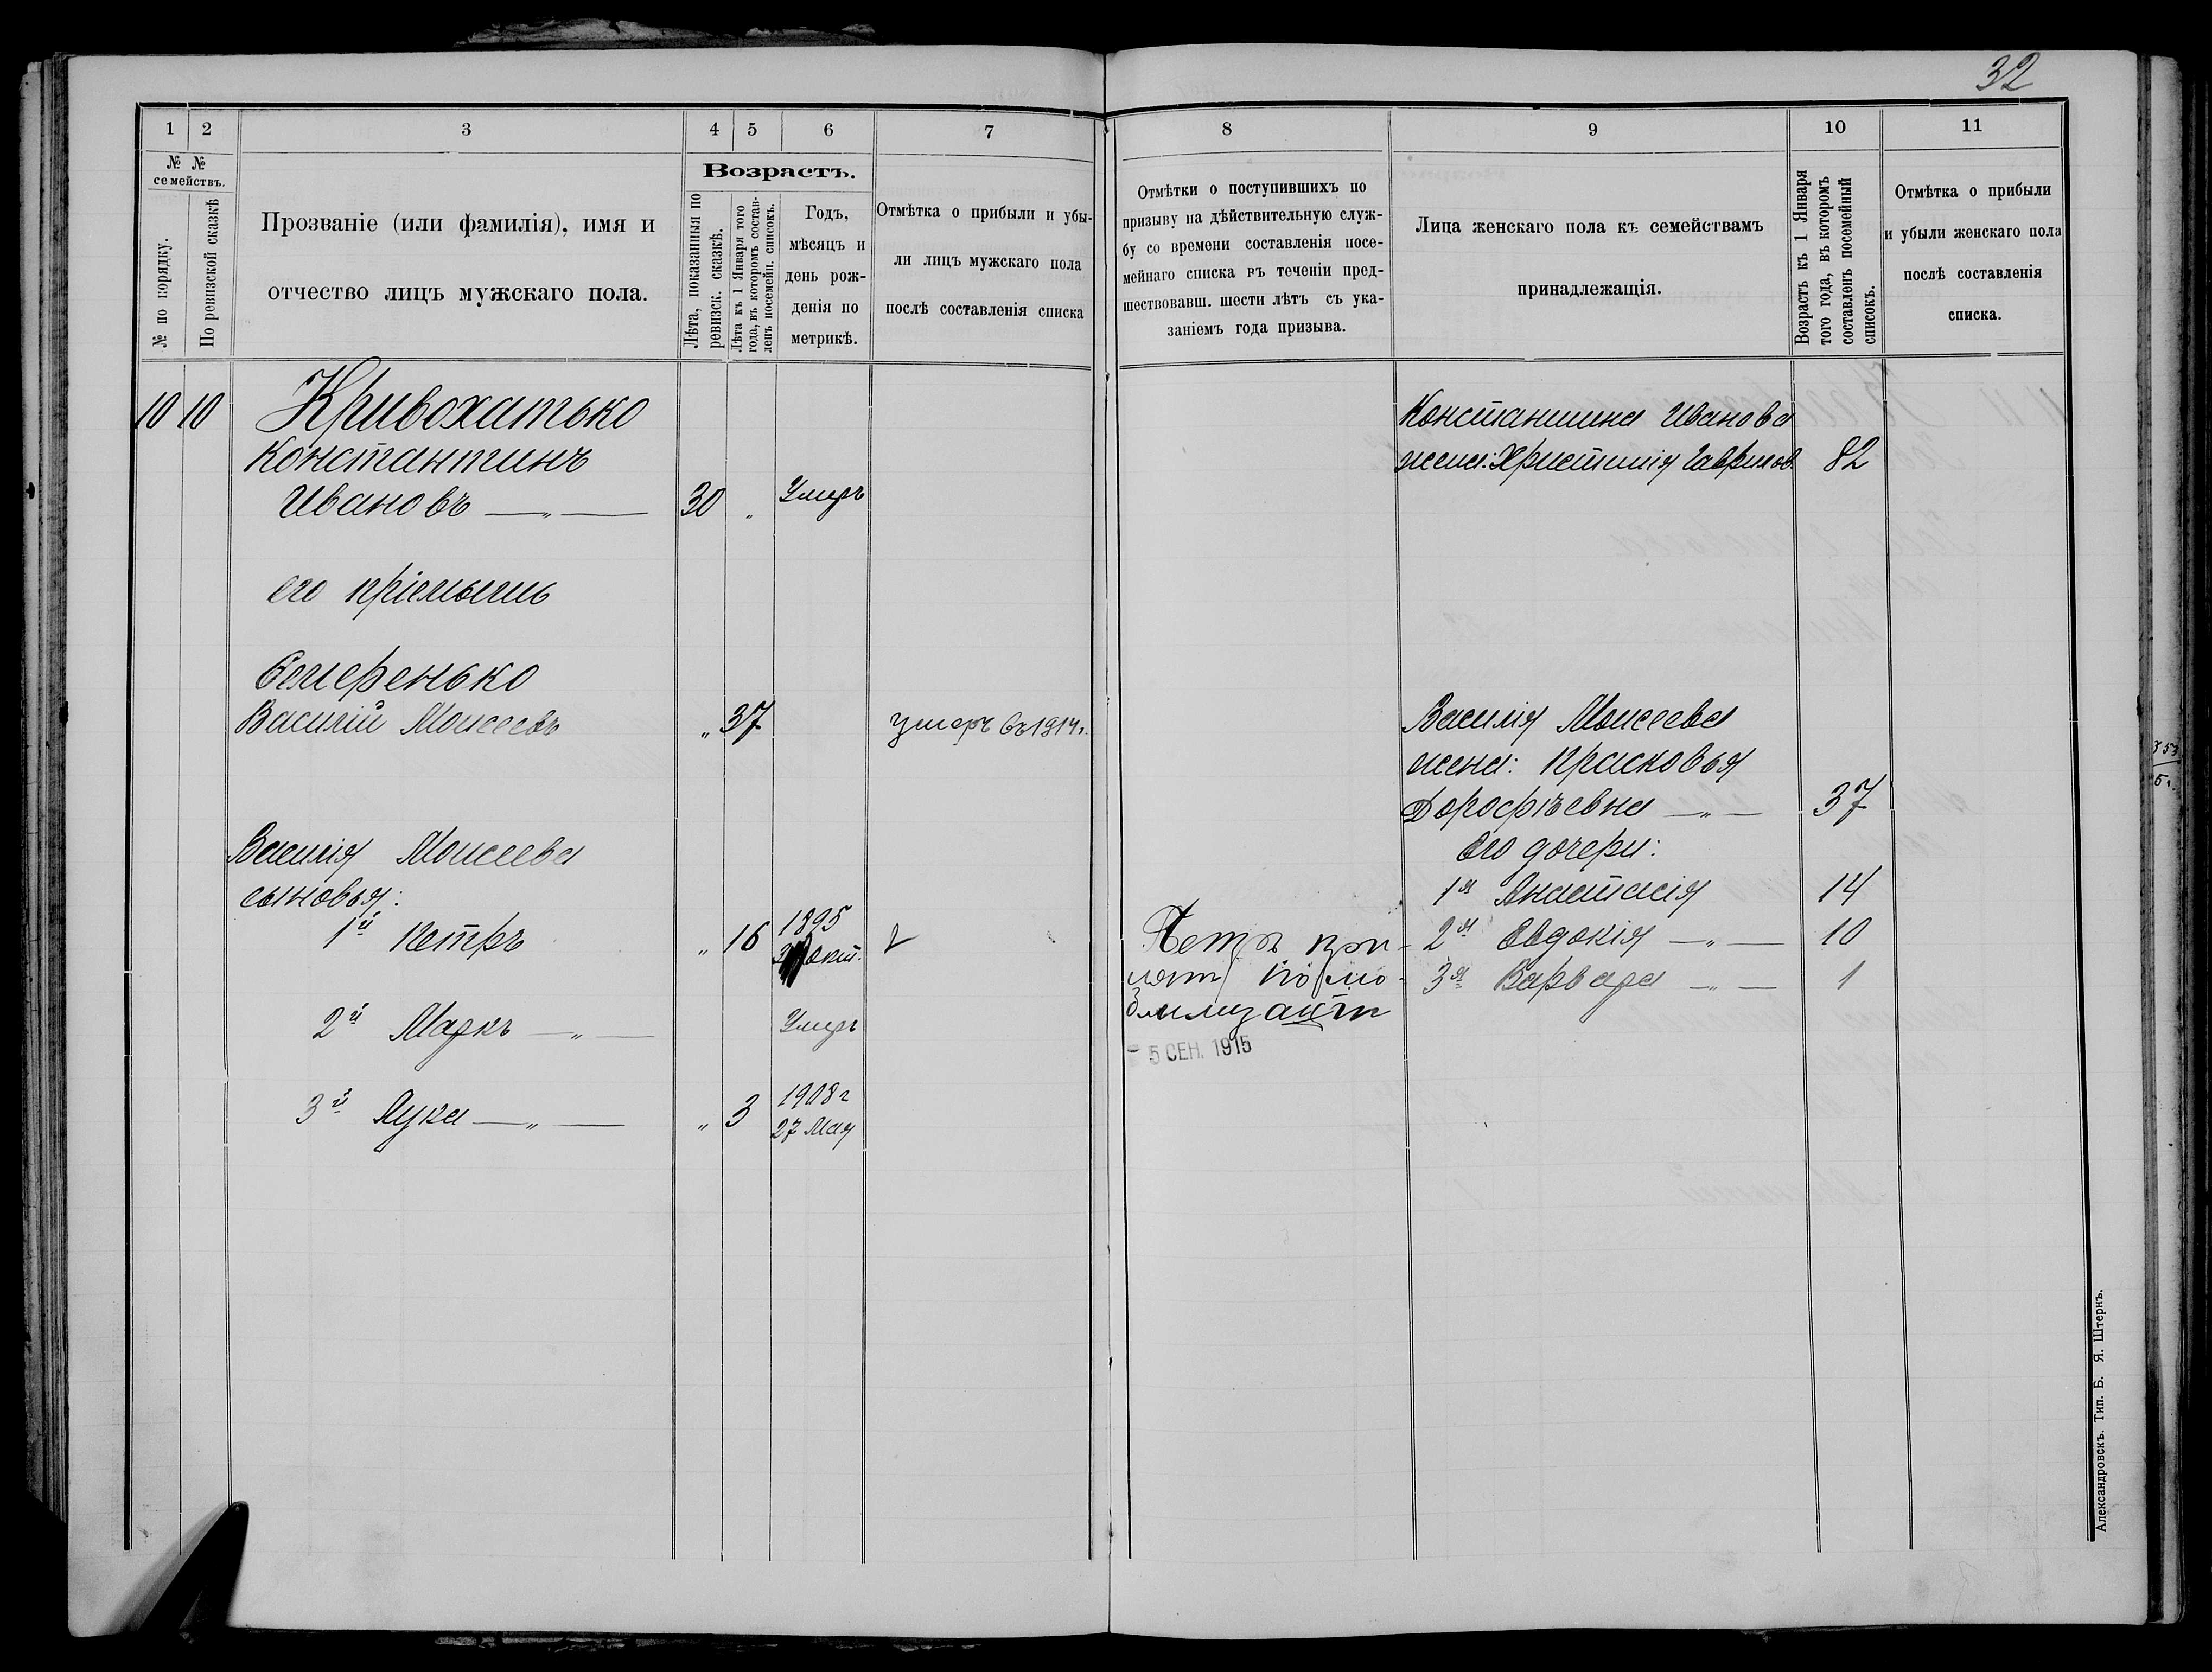 32
1
2
3
4
5
6
7
№ №
семействъ.
№ по порядку.
По ревизской сказкѣ
Прозваніе (или фамилія), имя и
отчество лицъ мужскаго пола.
Возрастъ.
Лѣта, показанныя по
ревизск. сказкѣ.
Лѣта къ 1 Января того
года, въ которомъ состав-
ленъ посемейн. списокъ.
Годъ,
мѣсяцъ и
день рож-
денія по
метрикѣ.
Отмѣтка о прибыли и убы-
ли лицъ мужскаго пола
послѣ составленія списка
10 10 Кривохатько
Константинъ
Ивановъ —„— 30 „ Умеръ
его пріемышъ
Василій Моисеевъ „ 37 умеръ въ 1914г.
Василія Моисеева
сыновья:
1й Петръ „ 16 1895
окт.
2й Маркъ —„— Умеръ
3й Лука —„— „ 3 1908 г
27 Мая
8
9
10
11
Отмѣтки о поступившихъ по
призыву на дѣйствительную служ-
бу со времени составленія посе-
мейнаго списка въ теченіи пред-
шествовавш. шести лѣтъ съ ука-
заніемъ года призыва.
Лица женскаго пола къ семействамъ
принадлежащія.
Возрастъ къ 1 Января
того года, въ которомъ
составленъ посемейный
списокъ.
Отмѣтка о прибыли
и убыли женскаго пола
послѣ составленія
списка.
Константина Иванова
жена: Христинія Гаврилов. 82
Василія Моисеева
жена: Прасковья
Дорофѣевна —„— 37
Его дочери:
1я Анастасія 14
2я Евдокія —„— 10
3я Варвара —„— 1
Петръ при-
нят по мо-
билизаціи
5 СЕН. 1915
Александровскъ. Тип. Б. Я. Штернъ.